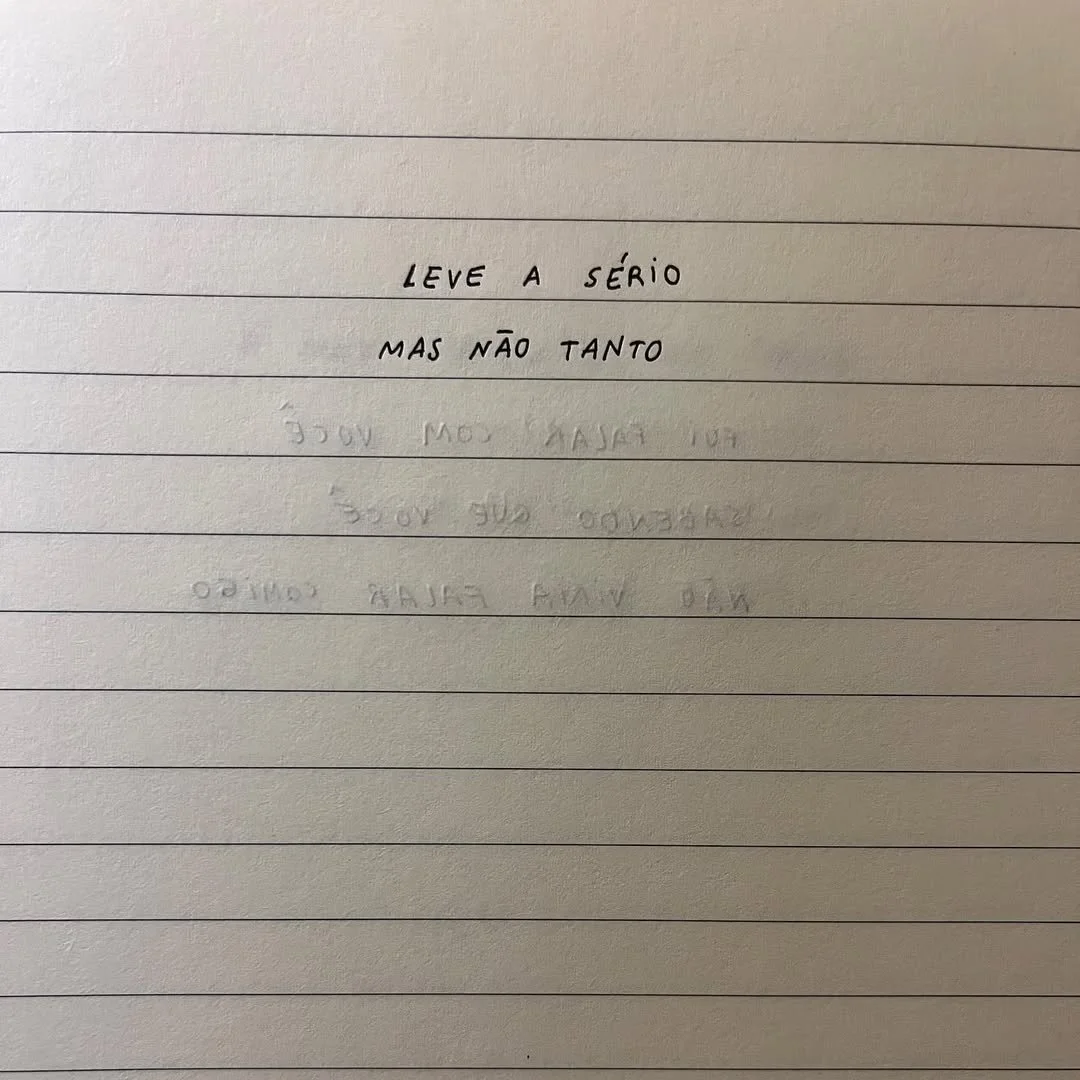 LEVE A SÉRIO
MAS NÃO TANTO
FUI FALAR COM VOCÊ
SABENDO QUE VOCÊ
NÃO VINHA FALAR COMIGO